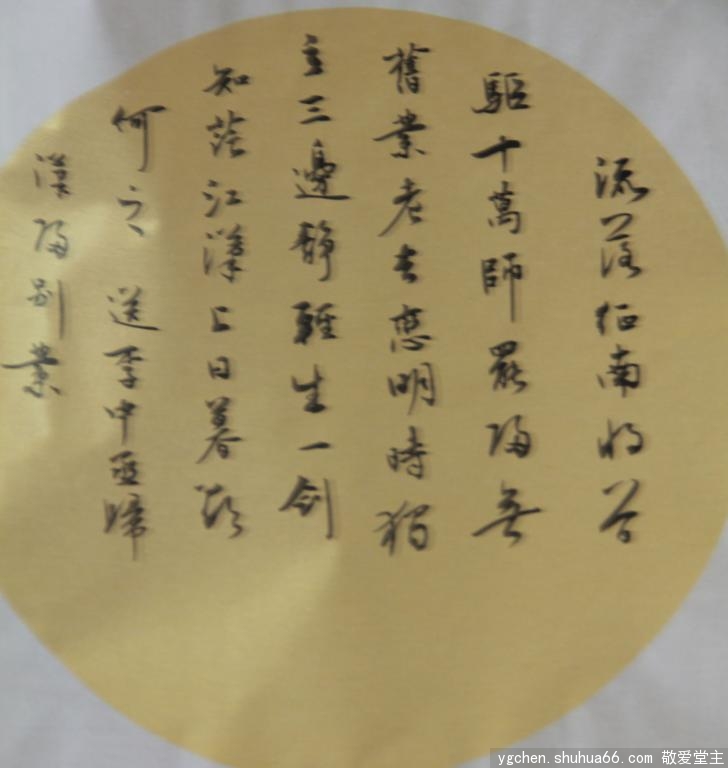 流落征南將曾
驅十萬師罷歸無
舊業老去戀明時獨
立三邊靜輕生一劍
知茫江漢上日暮欲
何之 送李中丞歸
漢陽別業
ygchen.shuhua66.com 敬爱堂主